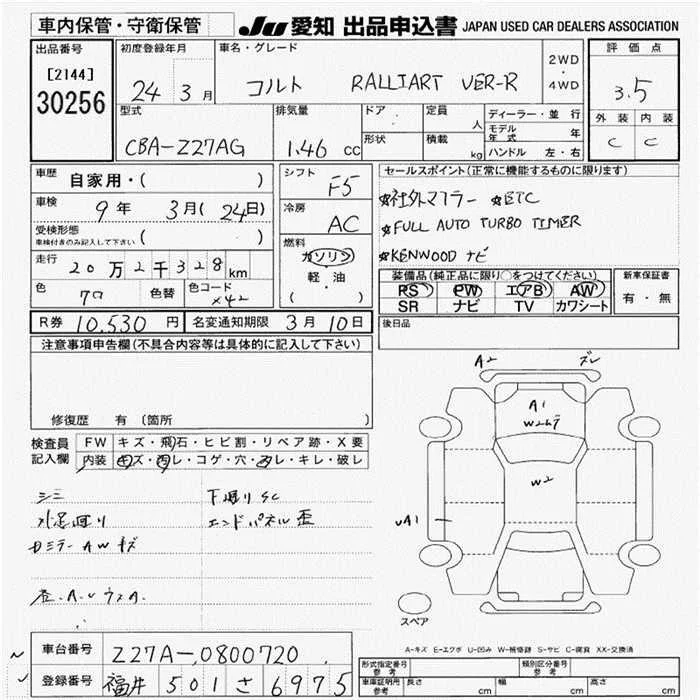 車内保管・守衛保管
JU 愛知 出品申込書 JAPAN USED CAR DEALERS ASSOCIATION
出品番号
[2144]
30256
初度登録年月
24年 3月
車名・グレード
コルト RALLIART VER-R
2WD
・
4WD
評価点
3.5
外装 内装
C C
型式
CBA-Z27AG
排気量
1.46 cc
ドア
形状
定員 人
積載 kg
ディーラー・並行
モデル年式 年
ハンドル 左・右
車歴 自家用・( )
車検 9年 3月(24日)
受検形態
車検付きのみ記入して下さい ( )
走行 20万2千328km
色 色替 色コード X42
シフト F5
冷房 AC
燃料
ガソリン
軽・油
( )
セールスポイント(正常に機能するものに限ります)
☆社外マフラー ☆ETC
☆FULL AUTO TURBO TIMER
☆KENWOOD ナビ
装備品(純正品に限り○をつけてください)
PS PW エアB AW
SR ナビ TV カワシート
新車保証書
有・無
R券 10,530円 名変通知期限 3月10日
後日品
注意事項申告欄(不具合内容等は具体的に記入して下さい)
修復歴 有 (箇所
検査員記入欄
FW キズ・飛石・ヒビ割・リペア跡・X要
内装 キズ・汚レ・コゲ・穴・スレ・キレ・破レ
シミ
下廻りSC
エンドパネル歪
A2 ズレ
A1
W2
A1
スペア
A-キズ E-エクボ U-凹み W-補修跡 S-サビ C-腐食 XX-交換済
車台番号 Z27A-0800720
登録番号 福井 501 さ 6975
形式指定番号 参考
類別区分番号 参考
車庫証明用 参考 長さ cm 幅 cm 高さ cm